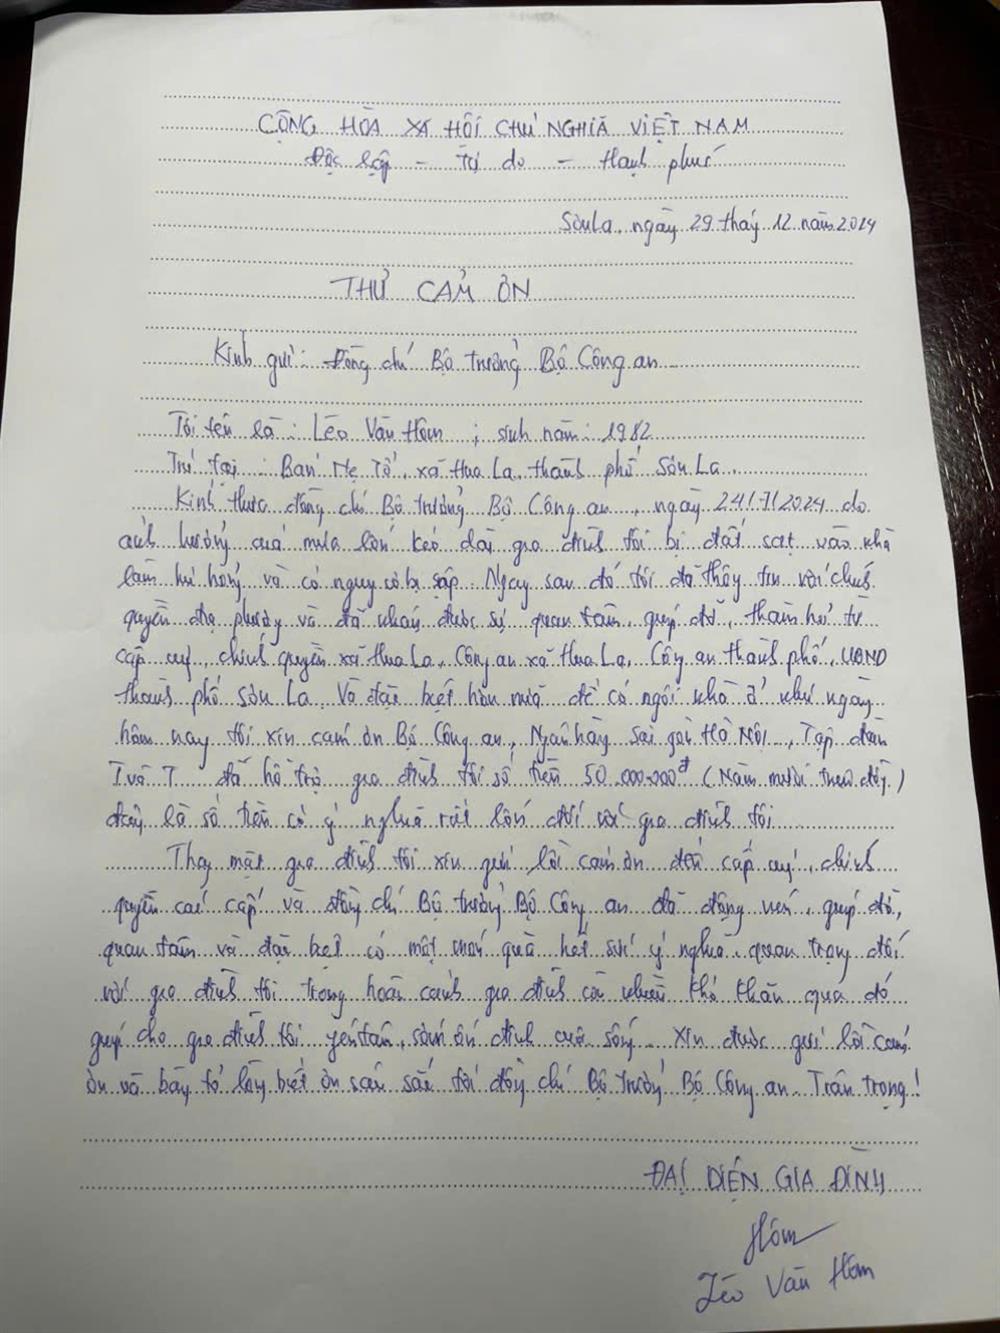 CỘNG HÒA XÃ HỘI CHỦ NGHĨA VIỆT NAM
Độc lập - Tự do - Hạnh phúc
Sơn La, ngày 29 tháng 12 năm 2024
THƯ CẢM ƠN
Kính gửi: Đồng chí Bộ trưởng Bộ Công an
Tôi tên là: Lèo Văn Hôm; sinh năm: 1982
Trú tại: Bản Mẹ Tổ, xã Hua La, thành phố Sơn La.
Kính thưa đồng chí Bộ trưởng Bộ Công an, ngày 24/7/2024 do
ảnh hưởng của mưa lớn kéo dài gia đình tôi bị đất sạt vào nhà
làm hư hỏng và có nguy cơ bị sập. Ngay sau đó tôi đã thông tin với chính
quyền địa phương và đã nhận được sự quan tâm, giúp đỡ, thăm hỏi từ
cấp uỷ, chính quyền xã Hua La, Công an xã Hua La, Công an thành phố, UBND
thành phố Sơn La. Và đặc biệt hơn nữa để có ngôi nhà ở như ngày
hôm nay tôi xin cảm ơn Bộ Công an, Ngân hàng Sài Gòn Hà Nội, Tập đoàn
T và T đã hỗ trợ gia đình tôi số tiền 50.000.000đ (Năm mươi triệu đồng)
đây là số tiền có ý nghĩa rất lớn đối với gia đình tôi
Thay mặt gia đình tôi xin gửi lời cảm ơn đến cấp uỷ, chính
quyền các cấp và đồng chí Bộ trưởng Bộ Công an đã động viên, giúp đỡ,
quan tâm và đặc biệt có một món quà hết sức ý nghĩa, quan trọng đối
với gia đình tôi trong hoàn cảnh gia đình còn nhiều khó khăn qua đó
giúp cho gia đình tôi yên tâm, sớm ổn định cuộc sống. Xin được gửi lời cảm
ơn và bày tỏ lòng biết ơn sâu sắc tới đồng chí Bộ trưởng Bộ Công an. Trân trọng!
ĐẠI DIỆN GIA ĐÌNH
Hôm
Lèo Văn Hôm